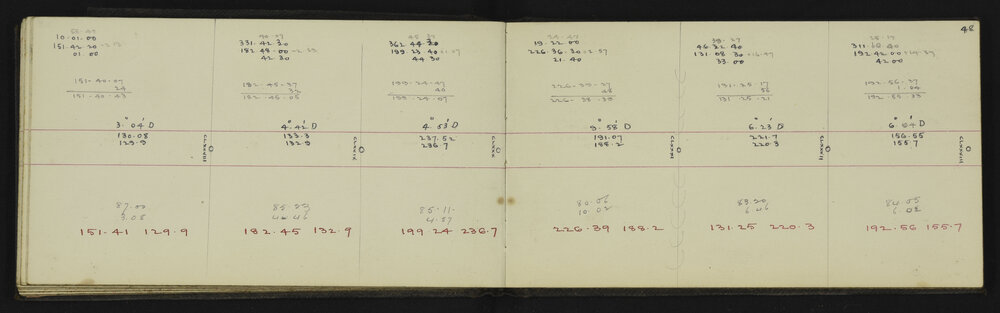 48
10.01.00
151.42.20
01 00
151.40.07
24
151.40.43
3° 04' D
130.08
129.9
87.00
3.08
151.41 129.9
331.42.30
182.48.00
42 30
182.45.37
32
182.45.05
4° 42' D
133.3
132.9
85.22
4.46
182.45 132.9
362 44 30
199.23 40
44 30
199.24.47
40
199.24.07
4° 53' D
237.52
236.7
85.11.
4.57
199.24 236.7
24.47
19.22 00
226.36.30
21.40
226.39.27
48
226.38.39
9° 58' D
191.07
188.2
80.06
10.02
226.39 188.2
39.27
46.32 40
131.08 30
33 00
131.25.17
56
131.25.21
6° 23' D
221.7
220.3
83.20
6.46
131.25 220.3
311.10 40
192.42 00
42 00
192.56.37
1.04
192.55.33
6° 04' D
156.55
155.7
84.05
6.02
192.56 155.7